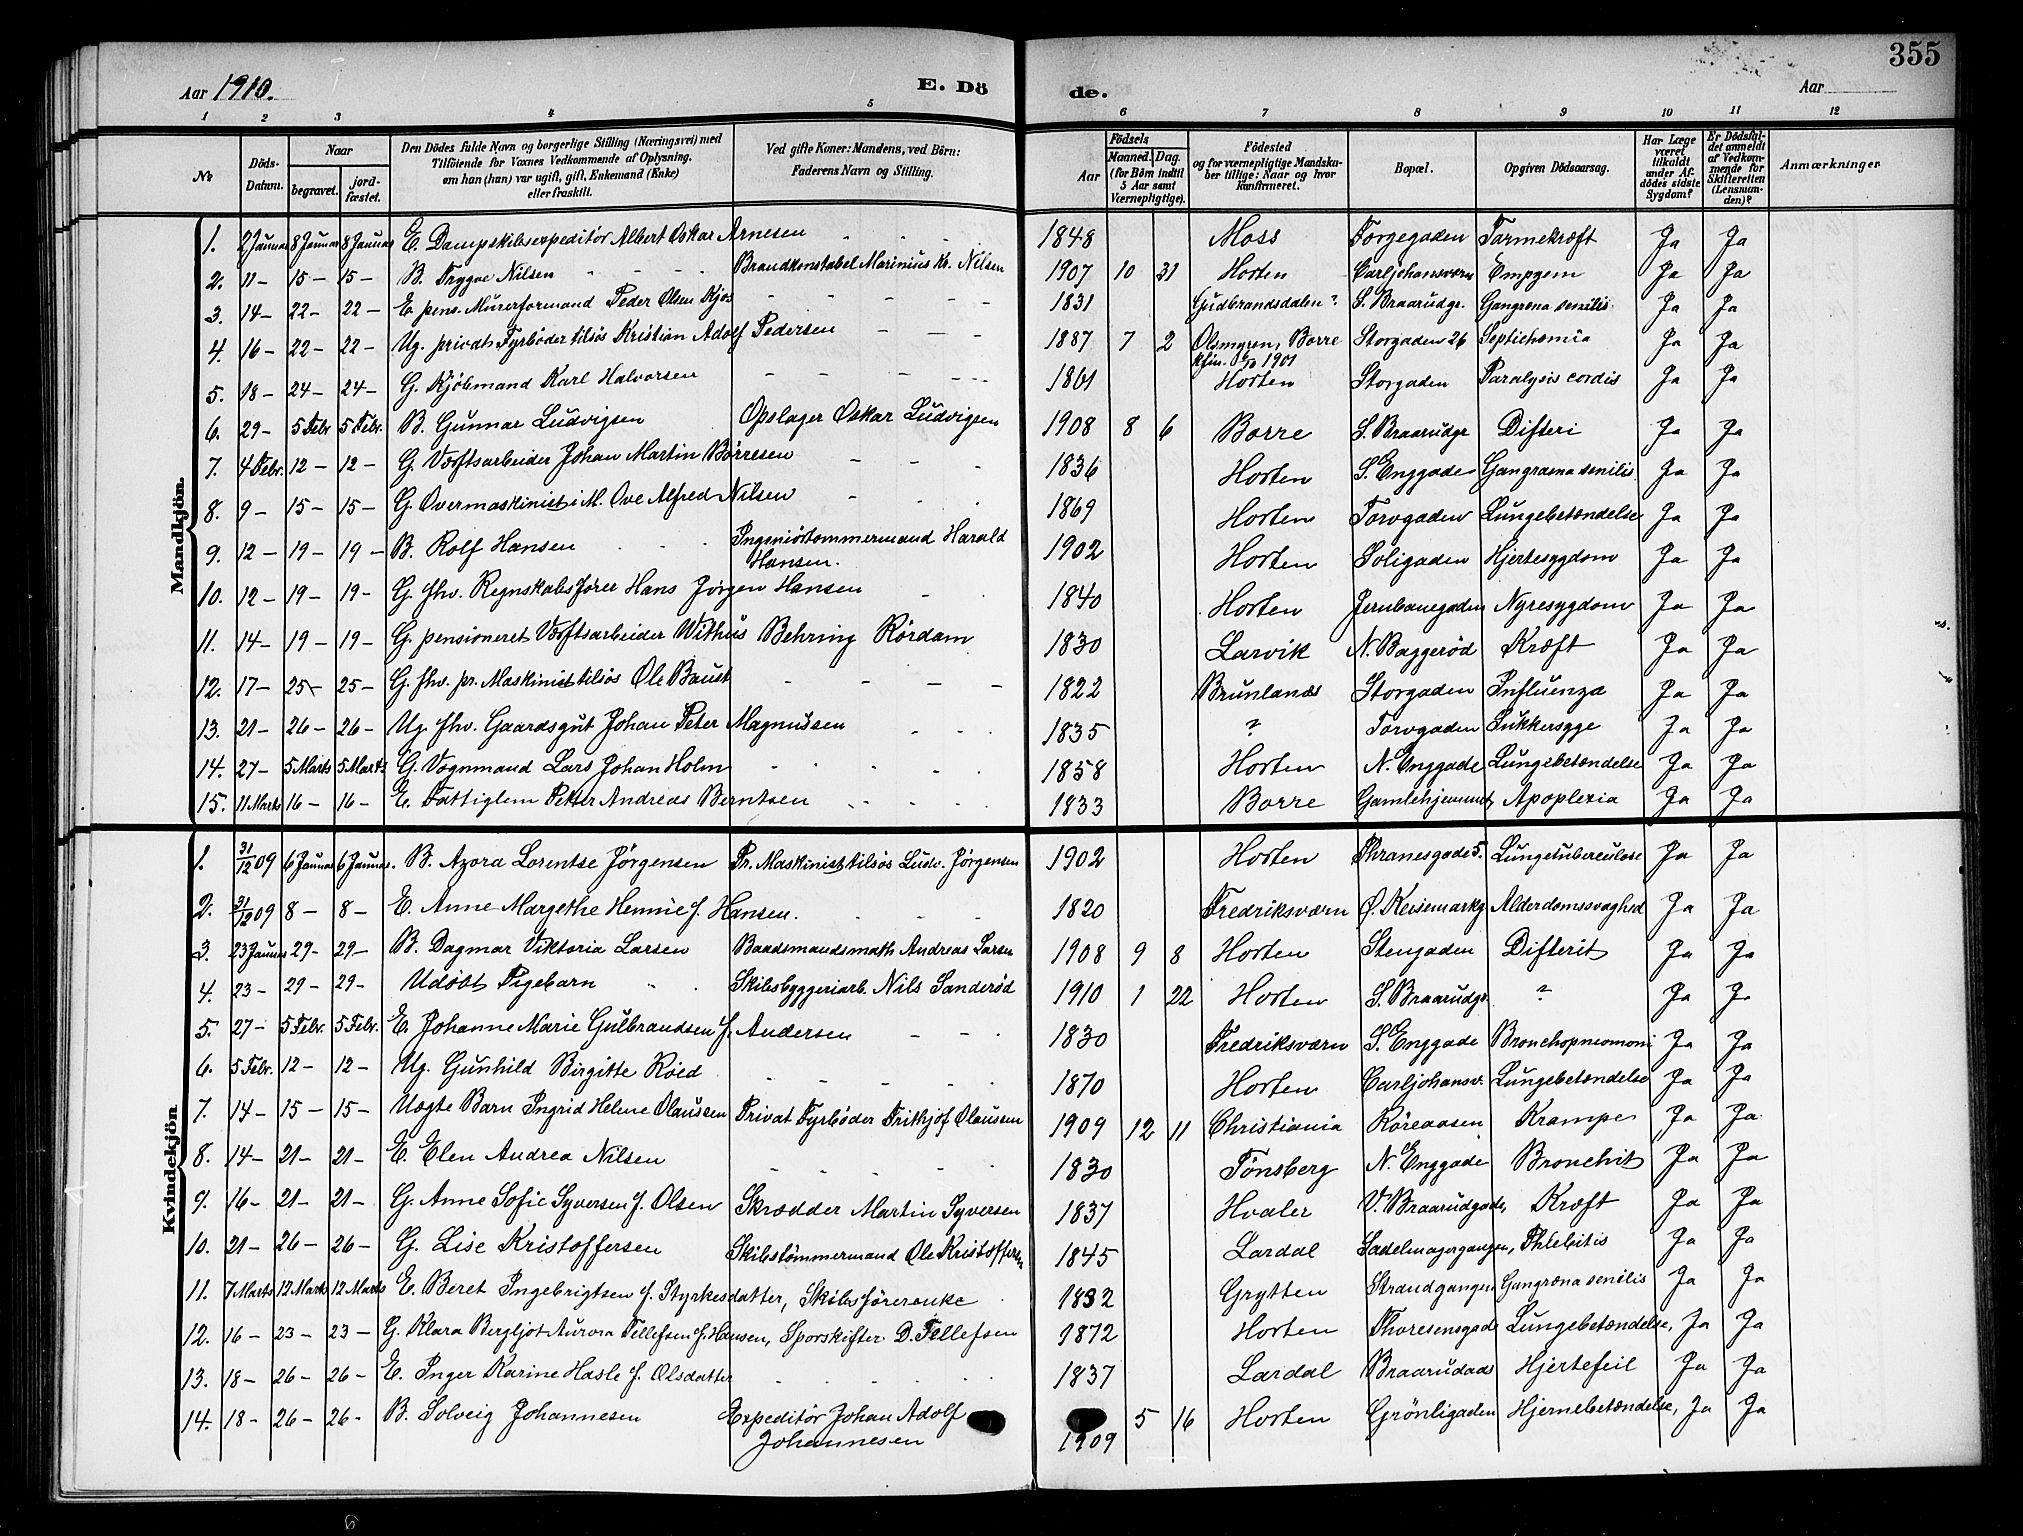 355
Aar 1910. E. Dö de. Aar
1 2 3 4 5 6 7 8 9 10 11 12
No
Döds-Datum.
Naar
begravet.
jord-fæstet.
Den Dödes fulde Navn og borgerlige Stilling (Næringsvei) med
Tilföiende for Voxnes Vedkommende af Oplysning,
om han (hun) var ugift, gift, Enkemand (Enke)
eller fraskilt.
Ved gifte Koner: Mandens, ved Börn:
Faderens Navn og Stilling.
Födsels
Aar
Maaned. Dag.
(for Börn indtil
5 Aar samt
Værnepligtige).
Födested
og for værnepligtige Mandska-
ber tillige: Naar og hvor
konfirmeret.
Bopæl.
Opgiven Dödsaarsag.
Har Læge
været
tilkaldt
under Af-
dödes sidste
Sygdom?
Er Dödsfal-
det anmeldt
af Vedkom-
mende for
Skifteretten
(Lensman-
den)?
Anmærkninger
Mandkjön.
1. 2 Januar 8 Januar 8 Januar E. Dampskibsexpeditör Albert Oskar Arnesen 1848 Moss Torvegaden Tarmekræft Ja Ja
2. 11 - 15 - 15 - B. Trygve Nilsen Brandkonstabel Marinius Kr. Nilsen 1907 10 31 Horten Carljohansværn Empyem Ja Ja
3. 14 - 22 - 22 - E. pens. Murerformand Peder Olsen Kjös 1831 Gudbrandsdalen? S. Braarudgr. Gangrena senilis Ja Ja
4. 16 - 22 - 22 - Ug. privat Fyrböder tilsös Kristian Adolf Pedersen 1887 7 2 Olsmyren, Borre Storgaden 26 Septichæmia Ja Ja
Kfin. 6/10 1901
5. 18 - 24 - 24 - G. Kjöbmand Karl Halvorsen 1861 Horten Storgaden Paralysis cordis Ja Ja
6. 29 - 5 Febr 5 Febr. B. Gunnar Ludvigsen Opslager Oskar Ludvigsen 1908 8 6 Borre S. Braarudgr Difteri Ja Ja
7. 4 Febr. 12 - 12 - G. Værftsarbeider Johan Martin Börresen 1836 Horten S. Enggade Gangraena senilis Ja Ja
8. 9 - 15 - 15 - G. Overmaskinist i M. Ove Alfred Nilsen 1869 Horten Torvgaden Lungebetændelse Ja Ja
9. 12 - 19 - 19 - B. Rolf Hansen Ingeniörtömmermand Harald 1902 Horten Soligaden Hjertesygdom Ja Ja
Hansen.
10. 12 - 19 - 19 - G. fhv. Regnskabsförer Hans Jörgen Hansen 1840 Horten Jernbanegaden Nyresygdom Ja Ja
11. 14 - 19 - 19 - G. pensioneret Værftsarbeider Withus Behring Rördam 1830 Larvik N. Baggeröd Kræft Ja Ja
12. 17 - 25 - 25 - G. fhv. pr. Maskinist tilsös Ole Baust 1822 Brunlanæs Storgaden Influenza Ja Ja
13. 21 - 26 - 26 - Ug. fhv. Gaardsgut Johan Peter Magnussen 1835 ? Torvgaden Sukkersyge Ja Ja
14. 27 - 5 Marts 5 Marts G. Vognmand Lars Johan Holm 1858 Horten N. Enggade Lungebetændelse Ja Ja
15. 11 Marts 16 - 16 - E. Fattiglem Petter Andreas Berntsen 1833 Borre Gamlehjemmet Apoplexia Ja Ja
Kvindekjön
1. 31/12 09 6 Januar 6 Januar. B. Azora Lorentse Jörgensen Pr. Maskinist tilsös Ludv. Jörgensen 1902 Horten Thranesgade 5. Lungetuberculose Ja Ja
2. 31/12 09 8 - 8 - E. Anne Margethe Hennie f. Hansen. 1820 Fredriksværn Ö. Keisemarkg Alderdomssvaghed Ja Ja
3. 23 Januar 29 - 29 - B. Dagmar Viktoria Larsen Baadsmandsmath Andreas Larsen 1908 9 8 Horten Stengaden Difterit Ja Ja
4. 23 - 29 - 29 - Udöbt Pigebarn Skibsbyggeriarb. Nils Sanderöd 1910 1 22 Horten S. Braarudgr ? Ja Ja
5. 27 - 5 Febr 5 Febr. E. Johanne Marie Gulbrandsen f. Andersen 1830 Fredriksværn S. Enggade Bronchopneomoni Ja Ja
6. 5 Febr. 12 - 12 - Ug. Gunhild Birgitte Röed 1870 Horten Carljohansv. Lungebetændelse Ja Ja
7. 14 - 15 - 15 - Uægte Barn Ingrid Helene Olaussen Privat Fyrböder Frithjof Olaussen 1909 12 11 Christiania Röreaasen Krampe Ja Ja
8. 14 - 21 - 21 - E. Elen Andrea Nilsen 1830 Tönsberg N. Enggade Bronchit Ja Ja
9. 16 - 21 - 21 - G. Anne Sofie Syversen f. Olsen Skrædder Martin Syversen 1837 Hvaler V. Braarudgade, Kræft Ja Ja
10. 21 - 26 - 26 - G. Lise Kristoffersen Skibstömmermand Ole Kristoffersen 1845 Lardal Sadelmagergangen, Phlebitis Ja Ja
11. 7 Marts 12 Marts 12 Marts E. Beret Ingebrigtsen f. Styrkesdatter, Skibsförerenke 1832 Grytten Strandgangen Gangræna senilis Ja Ja
12. 16 - 23 - 23 - G. Klara Bergljot Aurora Tellefsen f. Hansen, Sporskifter D. Tellefsen 1872 Horten Thoresensgade Lungebetændelse, Ja Ja
13. 18 - 26 - 26 - E. Inger Karine Hasle f. Olsdatter 1837 Lardal Braarudaas Hjertefeil Ja Ja
14. 18 - 26 - 26 - B. Solveig Johannesen Expeditör Johan Adolf 5 16 Horten Grönligaden Hjernebetændelse, Ja Ja
Johannesen 1909